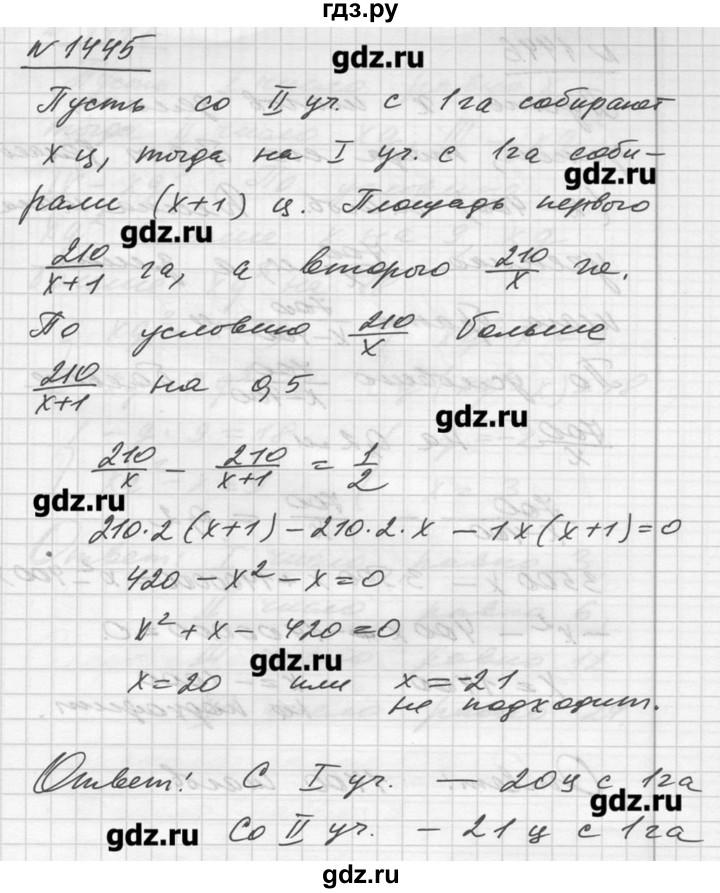 гдз.ру
N 1445
gdz.ru
Пусть со II уч. с 1га собирают
x ц, тогда на I уч. с 1га соби-
gdz.ru
рали (x+1) ц. Площадь первого
gdz.ru
210/x+1 га, а второго 210/x га.
По условию 210/x больше
210/x+1 на 0,5
gdz.ru
210/x - 210/x+1 = 1/2
gdz.ru
210·2(x+1) - 210·2·x - 1x(x+1)=0
420 - x² - x = 0
x² + x - 420 = 0
gdz.ru
x = 20 или x = -21
не подходит.
Ответ: С I уч. — 20ц с 1га
gdz.ru
Со II уч. - 21 ц с 1га
gdz.ru
гдз.ру